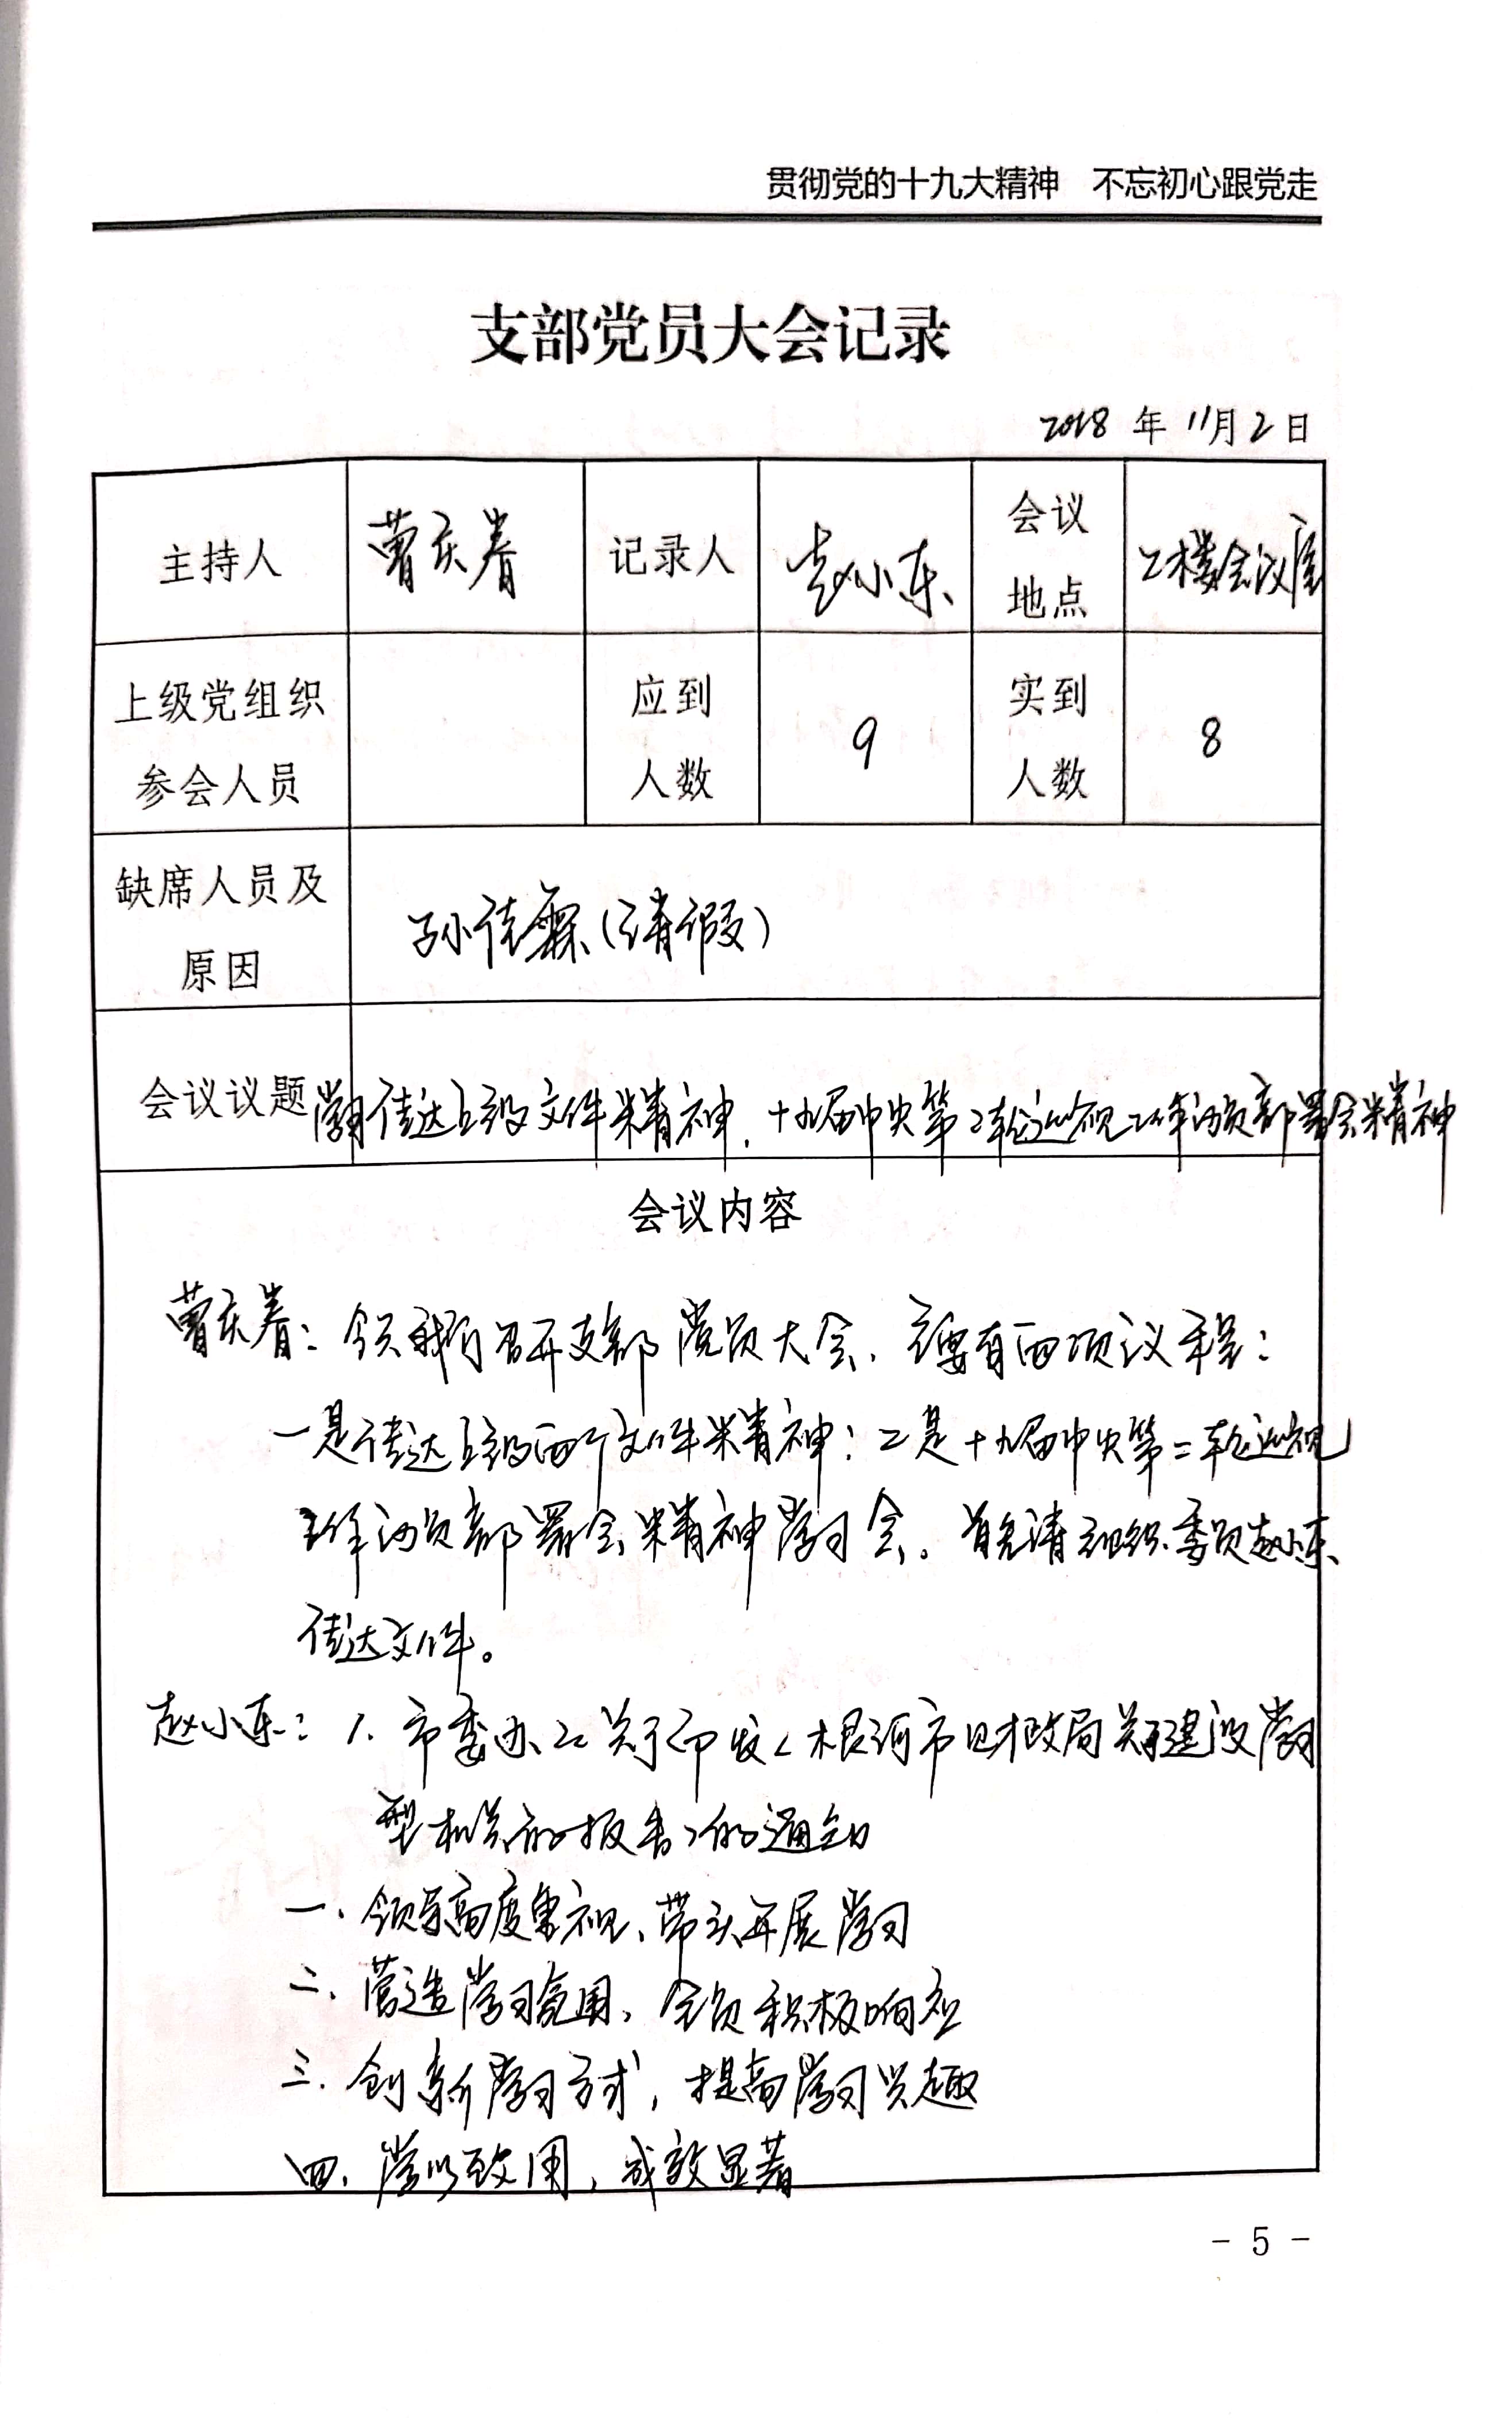 贯彻党的十九大精神 不忘初心跟党走
支部党员大会记录
2018 年 11月 2 日
主持人 曹庆春 记录人 赵小东 会议地点 二楼会议室
上级党组织参会人员 应到人数 9 实到人数 8
缺席人员及原因 孙佳霖(请假)
会议议题 学习传达上级文件精神,十九届中央第二轮巡视工作动员部署会精神
会议内容
曹庆春:今天我们召开支部党员大会,主要有两项议程:
一是传达上级两个文件精神;二是十九届中央第二轮巡视
工作动员部署会精神学习会。首先请组织委员赵小东
传达文件。
赵小东:1、市委办《关于印发<根河市财政局关于建设学习
型机关的报告>的通知
一、领导高度重视、带头开展学习
二、营造学习氛围,全员积极响应
三、创新学习方式,提高学习兴趣
四、学以致用,成效显著
- 5 -